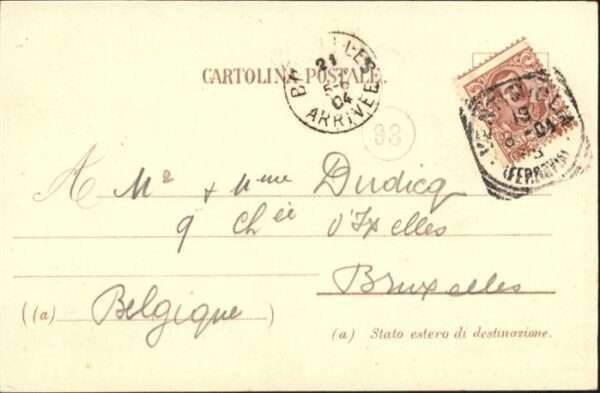 CARTOLINA POSTALE.
BRUXELLES
21
5-6
04
ARRIVEE
93
VENTIMIGLIA
19
04
(FERROVIA)
A Mr & Mme Dudicq
9 Chée d'Ixelles
Bruxelles
((a) Belgique )
(a) Stato estero di destinazione.